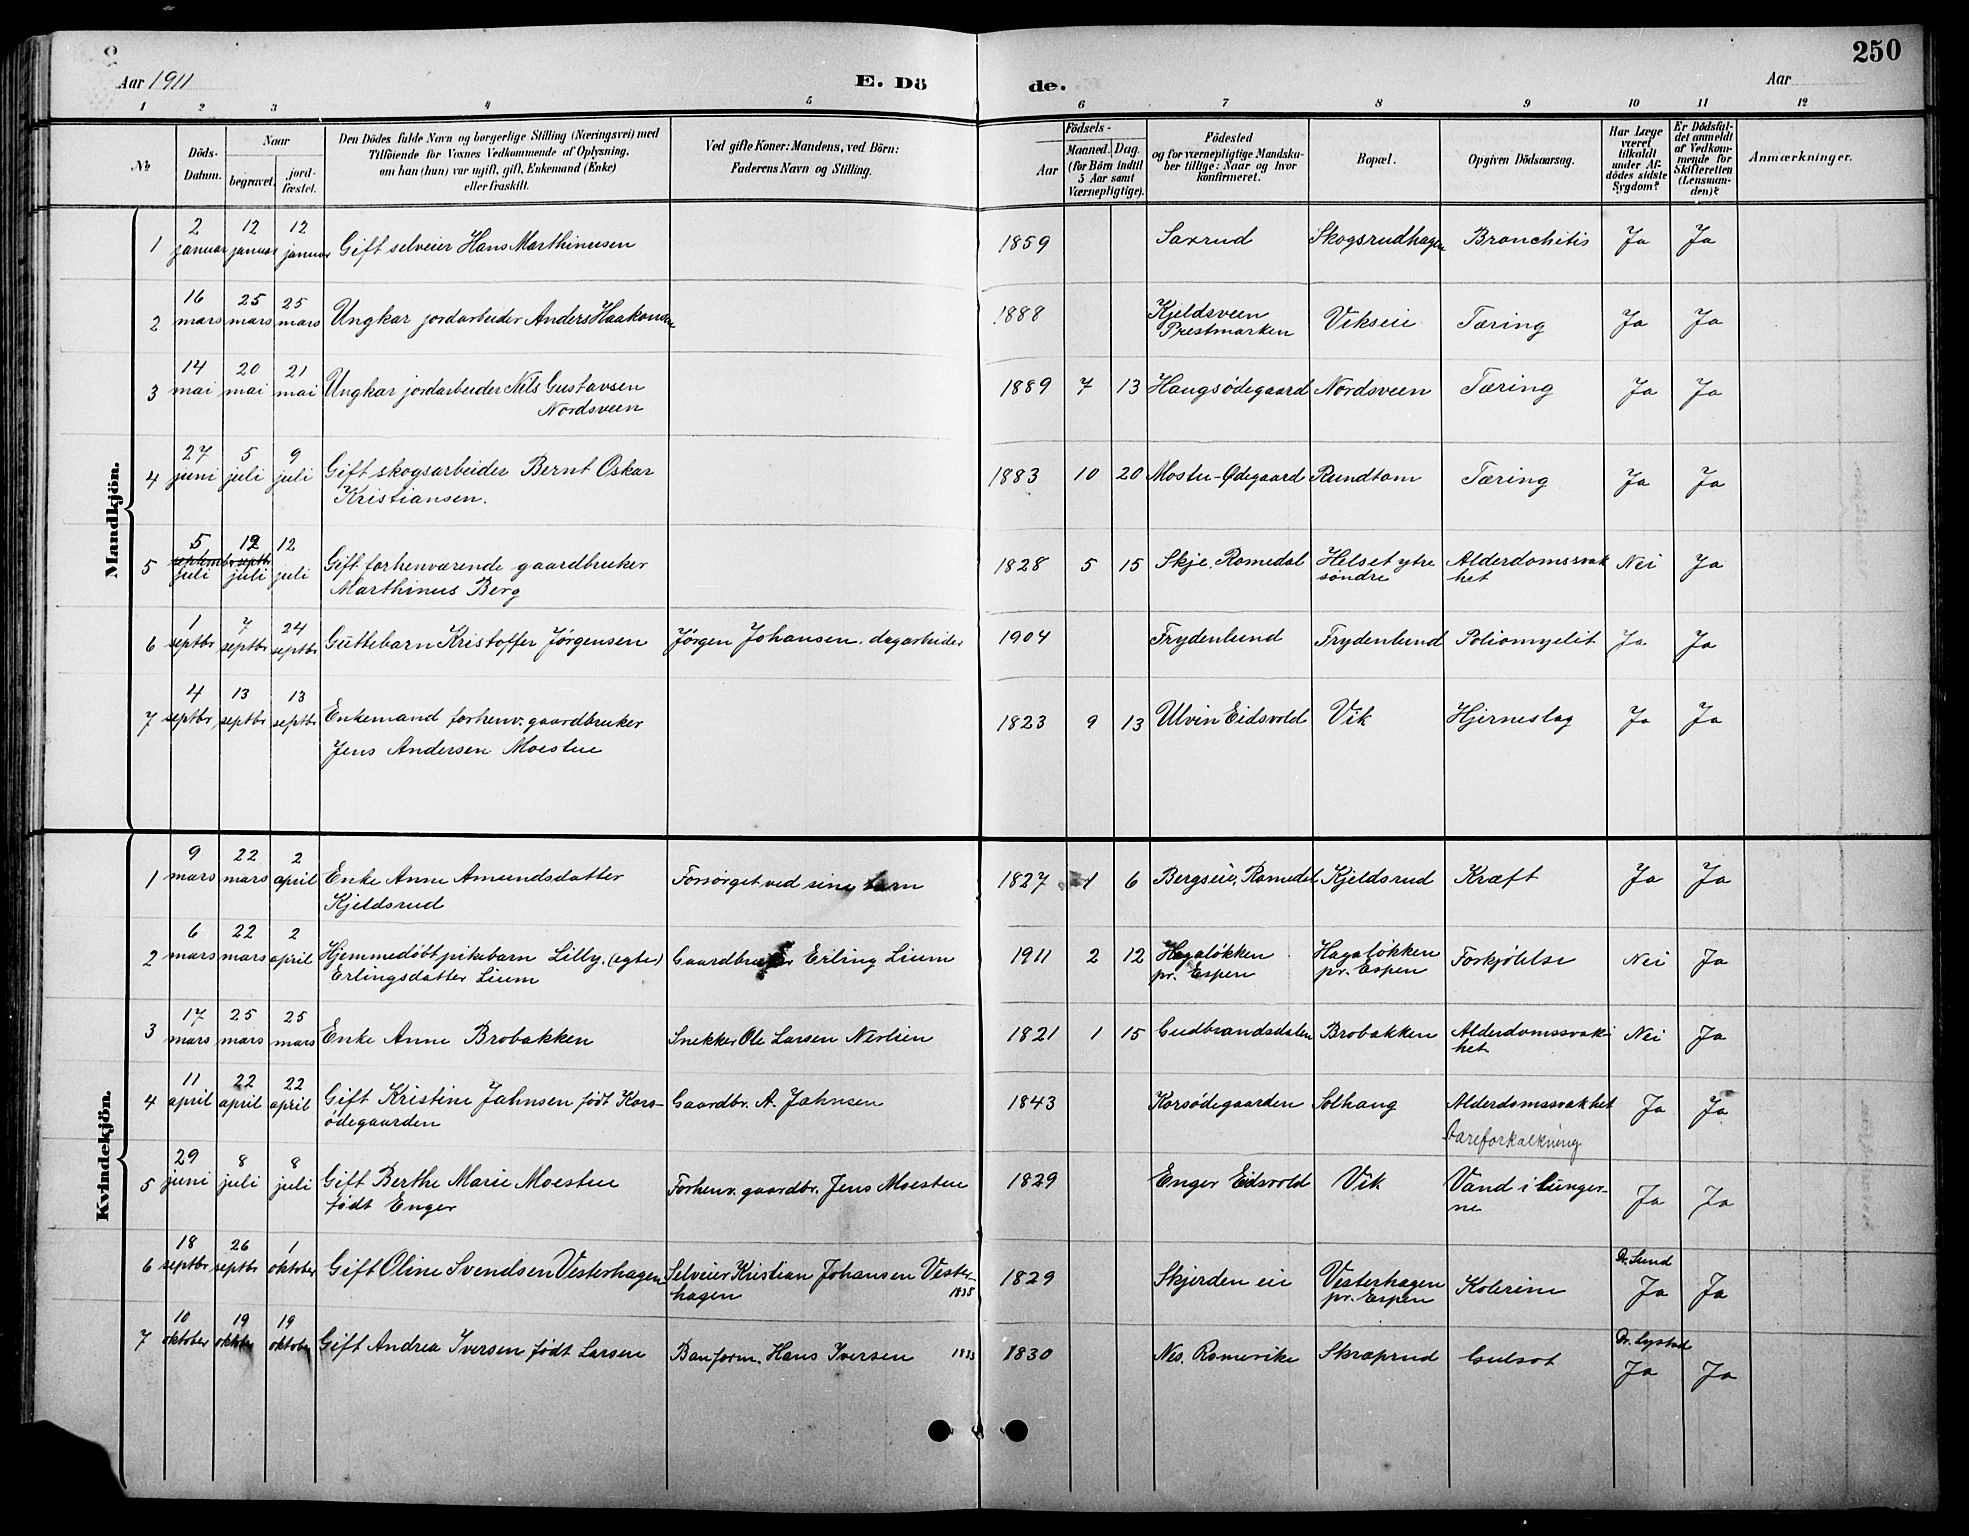 250
Aar 1911 E. Dö de. Aar
1 2 3 4 5 6 7 8 9 10 11 12
№
Döds-Datum.
Naar
begravet.
jord-fæstet.
Den Dödes fulde Navn og borgerlige Stilling (Næringsvei) med
Tilföiende for Voxnes Vedkommende af Oplysning,
om han (hun) var ugift, gift, Enkemand (Enke)
eller fraskilt.
Ved gifte Koner: Mandens, ved Börn:
Faderens Navn og Stilling.
Födsels-
Aar
Maaned. Dag.
(for Börn indtil
5 Aar samt
Værnepligtige).
Födested
og for værnepligtige Mandska-
ber tillige: Naar og hvor
konfirmeret.
Bopæl.
Opgiven Dödsaarsag.
Har Læge
været
tilkaldt
under Af-
dödes sidste
Sygdom?
Er Dödsfal-
det anmeldt
af Vedkom-
mende for
Skifteretten
(Lensman-
den)?
Anmærkninger.
Mandkjön.
1 2 januar 12 januar 12 januar Gift selveier Hans Marthinusen 1859 Saxrud Skogsrudhagen Bronchitis Ja Ja
2 16 mars 25 mars 25 mars Ungkar jordarbeider Anders Haakonsen 1888 Kjeldsveen Prestmarken Vikseie Tæring Ja Ja
3 14 mai 20 mai 21 mai Ungkar jordarbeider Nils Gustavsen 1889 7 13 Haugsødegaard Nordsveen Tæring Ja Ja
Nordsveen
4 27 juni 5 juli 9 juli Gift skogsarbeider Bernt Oskar 1883 10 20 Mostu-Ødegaard Rundtom Tæring Ja Ja
Kristiansen.
5 5 septembr juli 12 septbr juli 12 juli Gift forhenværende gaardbruker 1828 5 15 Skje. Romedal Helset ytre søndre Alderdomssvakhet Nei Ja
Marthinus Berg
6 1 septbr 7 septbr 24 septbr Guttebarn Kristoffer Jørgensen Jørgen Johansen. dagarbeider 1904 Frydenlund Frydenlund Poliomyelit Ja Ja
7 4 septbr 13 septbr 13 septbr Enkemand forhenv. gaardbruker 1823 9 13 Ulvin Eidsvold Vik Hjerneslag Ja Ja
Jens Andersen Moestue
Kvindekjön.
1 9 mars 22 mars 2 april Enke Anne Amundsdatter Forsørget ved sine barn 1827 1 6 Bergseie, Romedal Kjeldsrud Kræft Ja Ja
Kjeldsrud
2 6 mars 22 mars 2 april Hjemmedøbt pikebarn Lilly. (egte) Gaardbruker Erling Lium 1911 2 12 Hagaløkken pr. Espen Hagaløkken pr. Espen Forkjølelse Nei Ja
Erlingsdatter Lium
3 17 mars 25 mars 25 mars Enke Anne Brobakken Snekker Ole Larsen Nerlien 1821 1 15 Gudbrandsdalen Brobakken Alderdomssvakhet Nei Ja
4 11 april 22 april 22 april Gift Kristine Jahnsen født Kors- Gaardbr. A. Jahnsen 1843 Korsødegaarden Solhaug Alderdomssvakhet Ja Ja
ødegaarden Aareforkalkning
5 29 juni 8 juli 8 juli Gift Berthe Marie Moestue Forhenv. gaardbr. Jens Moestue 1829 Enger Eidsvold Vik Vand i lungerne Ja Ja
født Enger
6 18 septbr 26 septbr 1 oktober Gift Oline Svendsen Vesterhagen Selveier Kristian Johansen Vester-hagen 1835 1829 Skjerden eie Vesterhagen pr. Espen Kolerine Dr. Lund Ja Ja
7 10 oktober 19 oktober 19 oktober Gift Andrea Iversen født Larsen Banform. Hans Iversen 1830 Nes. Romerike Skræprud Gulsot Dr. Lystad Ja Ja